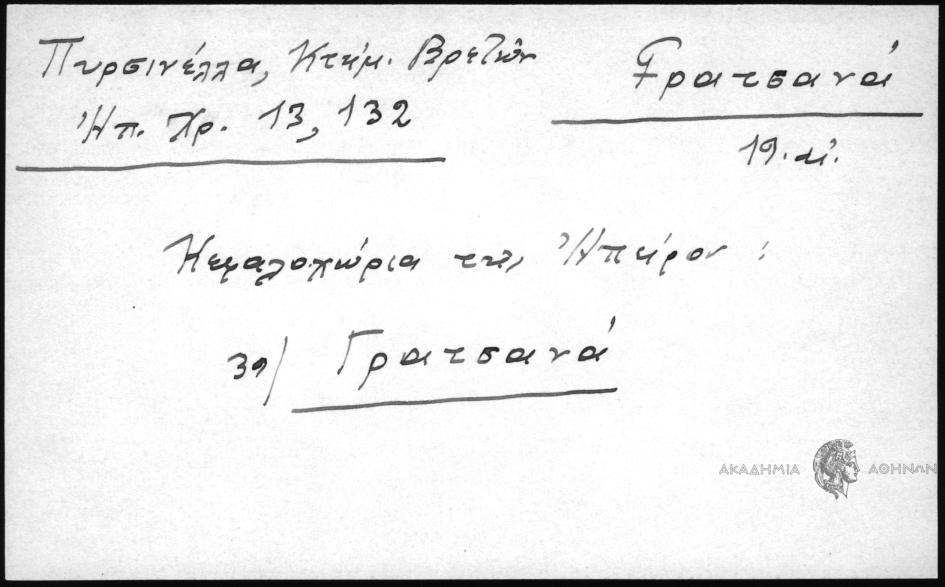 Πυρσινέλλα, Κτημ. Βρετῶν
Ἠπ. Χρ. 13, 132
Γρατσανά
19. αἰ.
Κεφαλοχώρια τῆς Ἠπείρου :
39/ Γρατσανά
ΑΚΑΔΗΜΙΑ ΑΘΗΝΩΝ